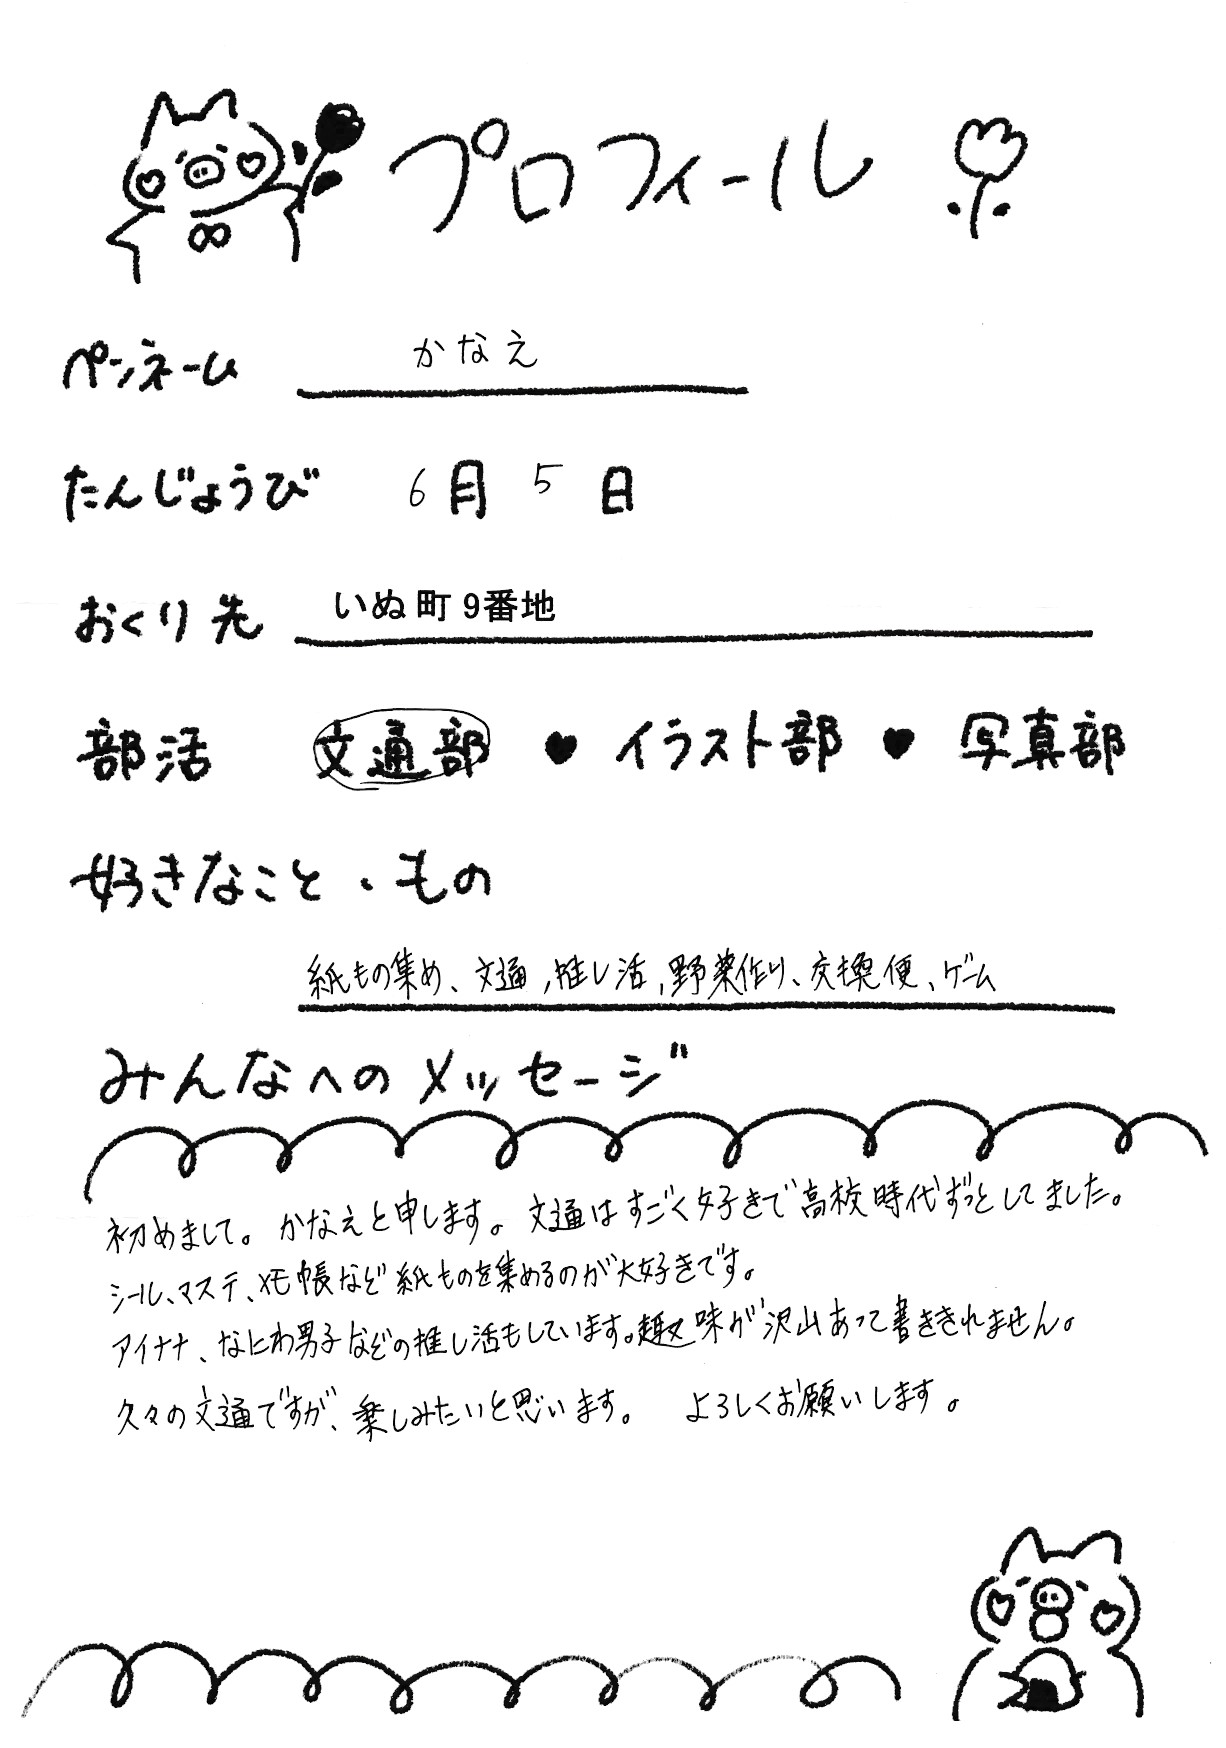 プロフィール
ペンネーム かなえ
たんじょうび 6月5日
おくり先 いぬ町9番地
部活 文通部 ♥ イラスト部 ♥ 写真部
好きなこと・もの
紙もの集め、文通,推し活,野菜作り、交換便、ゲーム
みんなへのメッセージ
初めまして。かなえと申します。文通はすごく好きで高校時代ずっとしてました。
シール、マステ、メモ帳など紙ものを集めるのが大好きです。
アイナナ、なにわ男子などの推し活もしています。趣味が沢山あって書ききれません。
久々の文通ですが、楽しみたいと思います。 よろしくお願いします。